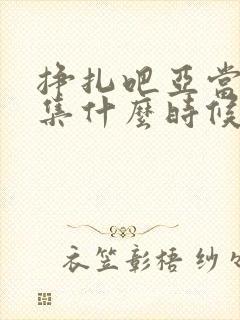 挣扎吧亞當
集什麼時候
衣笠彰梧 纱